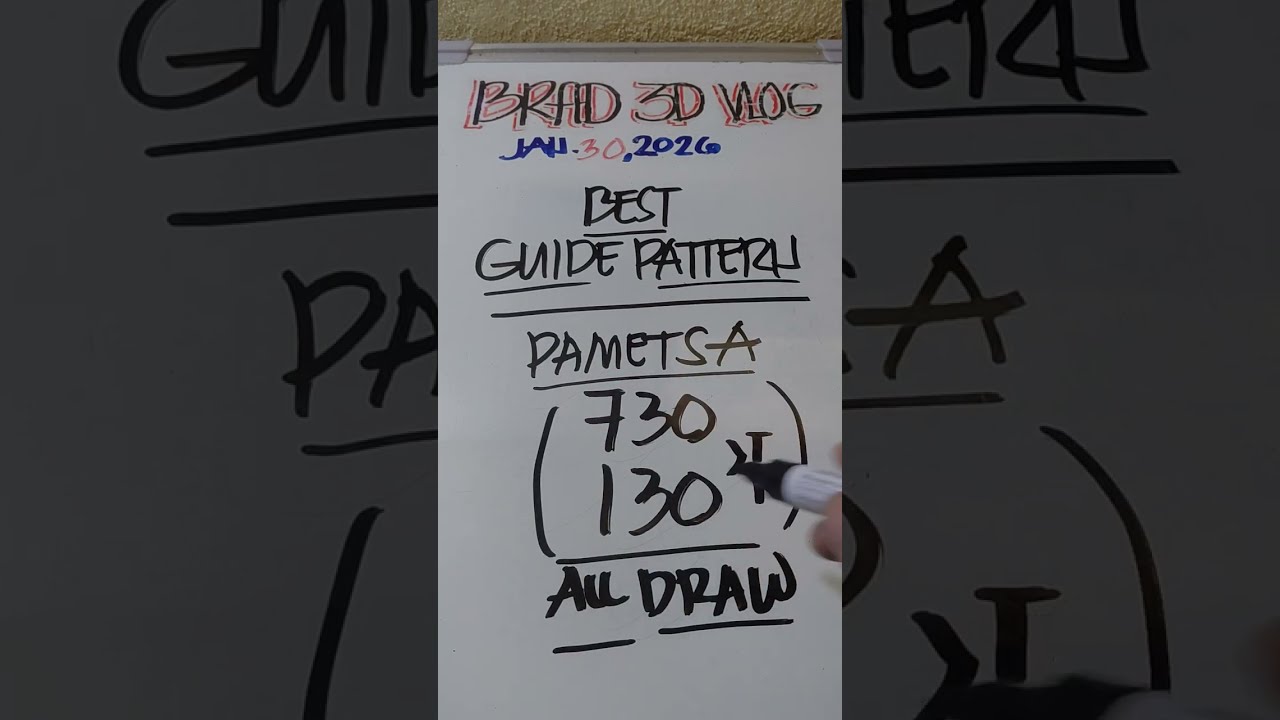 BRAD 3D VLOG
JAN. 30, 2026
BEST
GUIDE PATTERN
PAMETSA
730
130
ALL DRAW